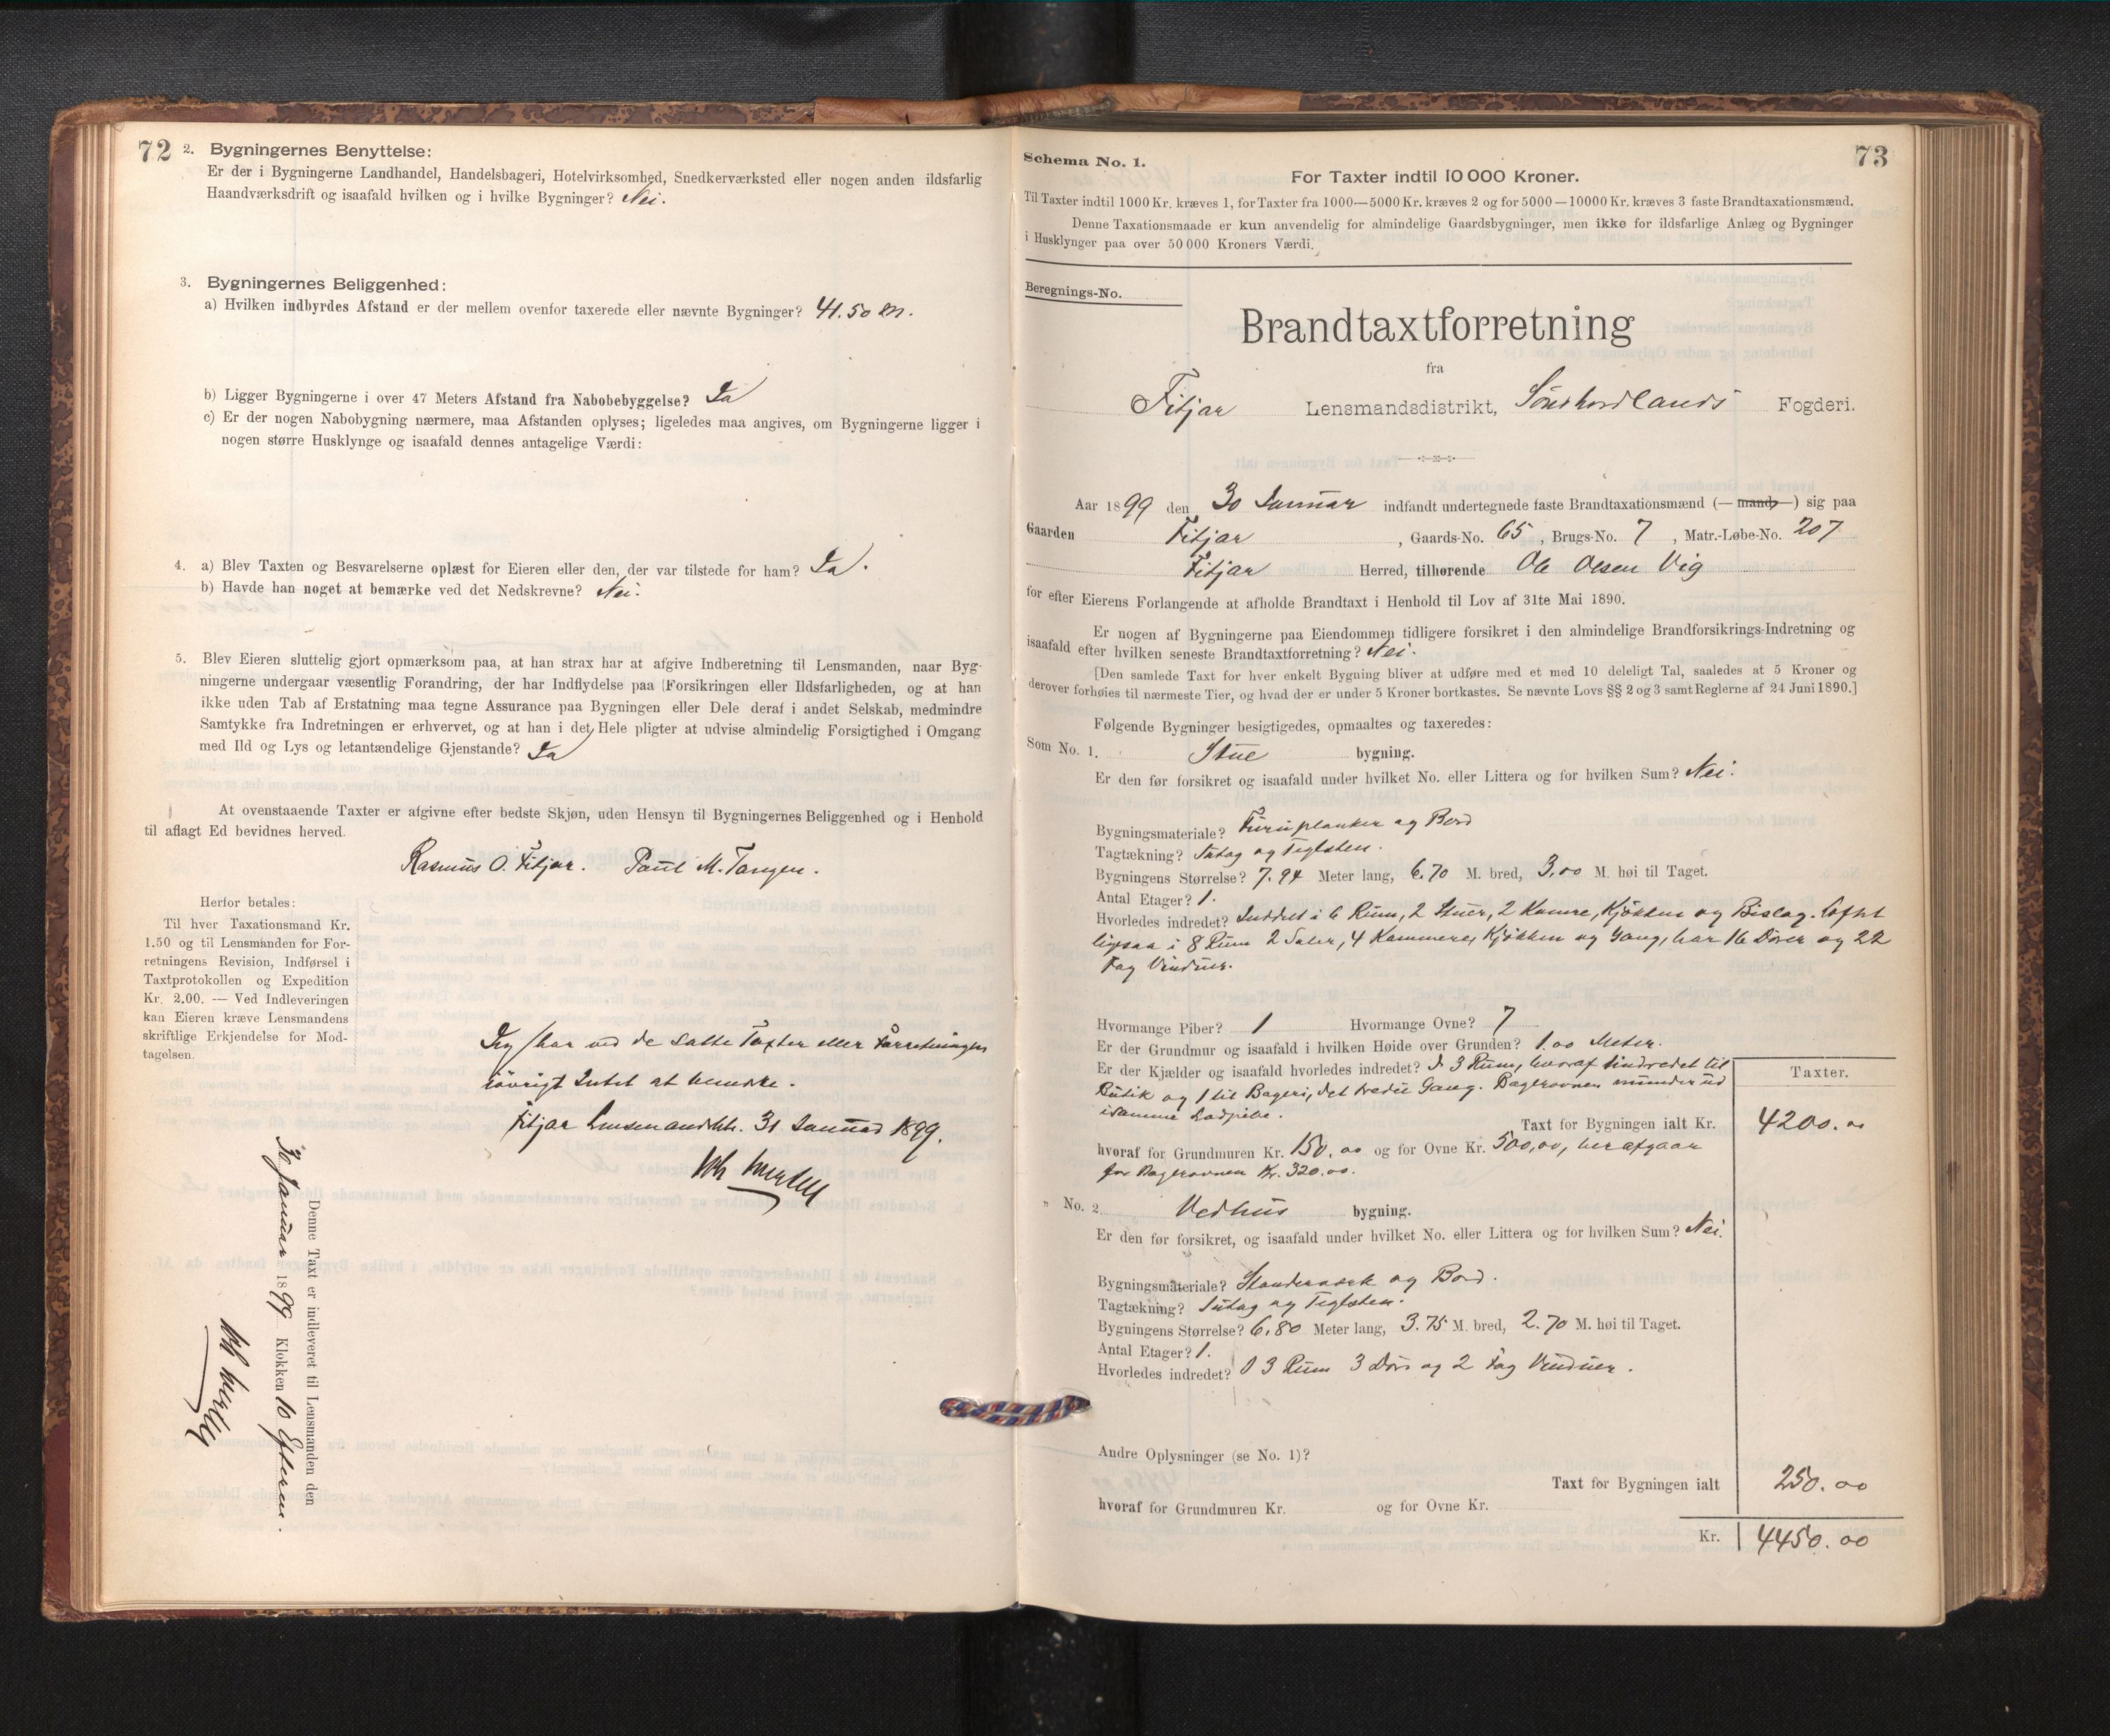 72
2. Bygningernes Benyttelse:
Er der i Bygningerne Landhandel, Handelsbageri, Hotelvirksomhed, Snedkerværksted eller nogen anden ildsfarlig
Haandværksdrift og isaafald hvilken og i hvilke Bygninger? Nei.
3. Bygningernes Beliggenhed:
a) Hvilken indbyrdes Afstand er der mellem ovenfor taxerede eller nævnte Bygninger? 41.50 m.
b) Ligger Bygningerne i over 47 Meters Afstand fra Nabobebyggelse? Ja
c) Er der nogen Nabobygning nærmere, maa Afstanden oplyses; ligeledes maa angives, om Bygningerne ligger i
nogen større Husklynge og isaafald dennes antagelige Værdi:
4. a) Blev Taxten og Besvarelserne oplæst for Eieren eller den, der var tilstede for ham? Ja.
b) Havde han noget at bemærke ved det Nedskrevne? Nei.
5. Blev Eieren sluttelig gjort opmærksom paa, at han strax har at afgive Indberetning til Lensmanden, naar Byg-
ningerne undergaar væsentlig Forandring, der har Indflydelse paa Forsikringen eller Ildsfarligheden, og at han
ikke uden Tab af Erstatning maa tegne Assurance paa Bygningen eller Dele deraf i andet Selskab, medmindre
Samtykke fra Indretningen er erhvervet, og at han i det Hele pligter at udvise almindelig Forsigtighed i Omgang
med Ild og Lys og letantændelige Gjenstande? Ja
At ovenstaaende Taxter er afgivne efter bedste Skjøn, uden Hensyn til Bygningernes Beliggenhed og i Henhold
til aflagt Ed bevidnes herved.
Rasmus O. Fitjar. Paul M. Tangen.
Herfor betales:
Til hver Taxationsmand Kr.
1,50 og til Lensmanden for For-
retningens Revision, Indførsel i
Taxtprotokollen og Expedition
Kr. 2.00. — Ved Indleveringen
kan Eieren kræve Lensmandens
skriftlige Erkjendelse for Mod-
tagelsen.
Jeg har ved de satte Taxter eller Forretningen
iøvrigt Intet at bemærke.
Fitjar Lensmandsbt. 31 Januar 1899.
Denne Taxt er indleveret til Lensmanden den
30 Januar 1899 Klokken 10 Efterm.
73
Schema No. 1.
For Taxter indtil 10 000 Kroner.
Til Taxter indtil 1000 Kr. kræves 1, for Taxter fra 1000—5000 Kr. kræves 2 og for 5000—10000 Kr. kræves 3 faste Brandtaxationsmænd.
Denne Taxationsmaade er kun anvendelig for almindelige Gaardsbygninger, men ikke for ildsfarlige Anlæg og Bygninger
i Husklynger paa over 50 000 Kroners Værdi.
Beregnings-No.
Brandtaxtforretning
fra
Fitjar Lensmandsdistrikt, Søndhordlands Fogderi.
Aar 1899 den 30 Januar indfandt undertegnede faste Brandtaxationsmænd (— mand —) sig paa
Gaarden Fitjar, Gaards-No. 65, Brugs-No. 7, Matr.-Løbe-No. 207
Fitjar Herred, tilhørende Ole Olsen Vig
for efter Eierens Forlangende at afholde Brandtaxt i Henhold til Lov af 31te Mai 1890.
Er nogen af Bygningerne paa Eiendommen tidligere forsikret i den almindelige Brandforsikrings-Indretning og
isaafald efter hvilken seneste Brandtaxtforretning? Nei.
[Den samlede Taxt for hver enkelt Bygning bliver at udføre med et med 10 deleligt Tal, saaledes at 5 Kroner og
derover forhøies til nærmeste Tier, og hvad der er under 5 Kroner bortkastes. Se nævnte Lovs §§ 2 og 3 samt Reglerne af 24 Juni 1890.]
Følgende Bygninger besigtigedes, opmaaltes og taxeredes:
Som No. 1. Stue bygning.
Er den før forsikret og isaafald under hvilket No. eller Littera og for hvilken Sum? Nei.
Bygningsmateriale? Furuplanker og Bord
Tagtækning? Sutag og Teglsten.
Bygningens Størrelse? 7.94 Meter lang, 6.70 M. bred, 3,00 M. høi til Taget.
Antal Etager? 1.
Hvorledes indredet? Inddelt i 6 Rum, 2 Stuer, 2 Kamre, Kjøkken og Bislag. Loftet
ligesaa i 8 Rum 2 Saler, 4 Kammere, Kjøkken og Gang, har 16 Dører og 22
Fag Vinduer.
Hvormange Piber? 1 Hvormange Ovne? 7
Er der Grundmur og isaafald i hvilken Høide over Grunden? 1.00 Meter.
Er der Kjælder og isaafald hvorledes indredet? I 3 Rum, hvoraf 1 indredet til
Butik og 1 til Bageri, det tredie Gang. Bagerovnen munder ud
i samme Ladpibe.
Taxter.
Taxt for Bygningen ialt Kr. 4200.00
hvoraf for Grundmuren Kr. 150.00 og for Ovne Kr. 500,00, heraf gaar
for Bagerovnen Kr. 320.00.
" No. 2 Vedhus bygning.
Er den før forsikret, og isaafald under hvilket No. eller Littera og for hvilken Sum? Nei.
Bygningsmateriale? Standerværk og Bord.
Tagtækning? Sutag og Teglsten.
Bygningens Størrelse? 6,80 Meter lang, 3.75 M. bred, 2.70 M. høi til Taget.
Antal Etager? 1.
Hvorledes indredet? I 3 Rum 3 Dør og 2 Fag Vinduer.
Andre Oplysninger (se No. 1)?
Taxt for Bygningen ialt 250.00
hvoraf for Grundmuren Kr. og for Ovne Kr.
Kr. 4450.00